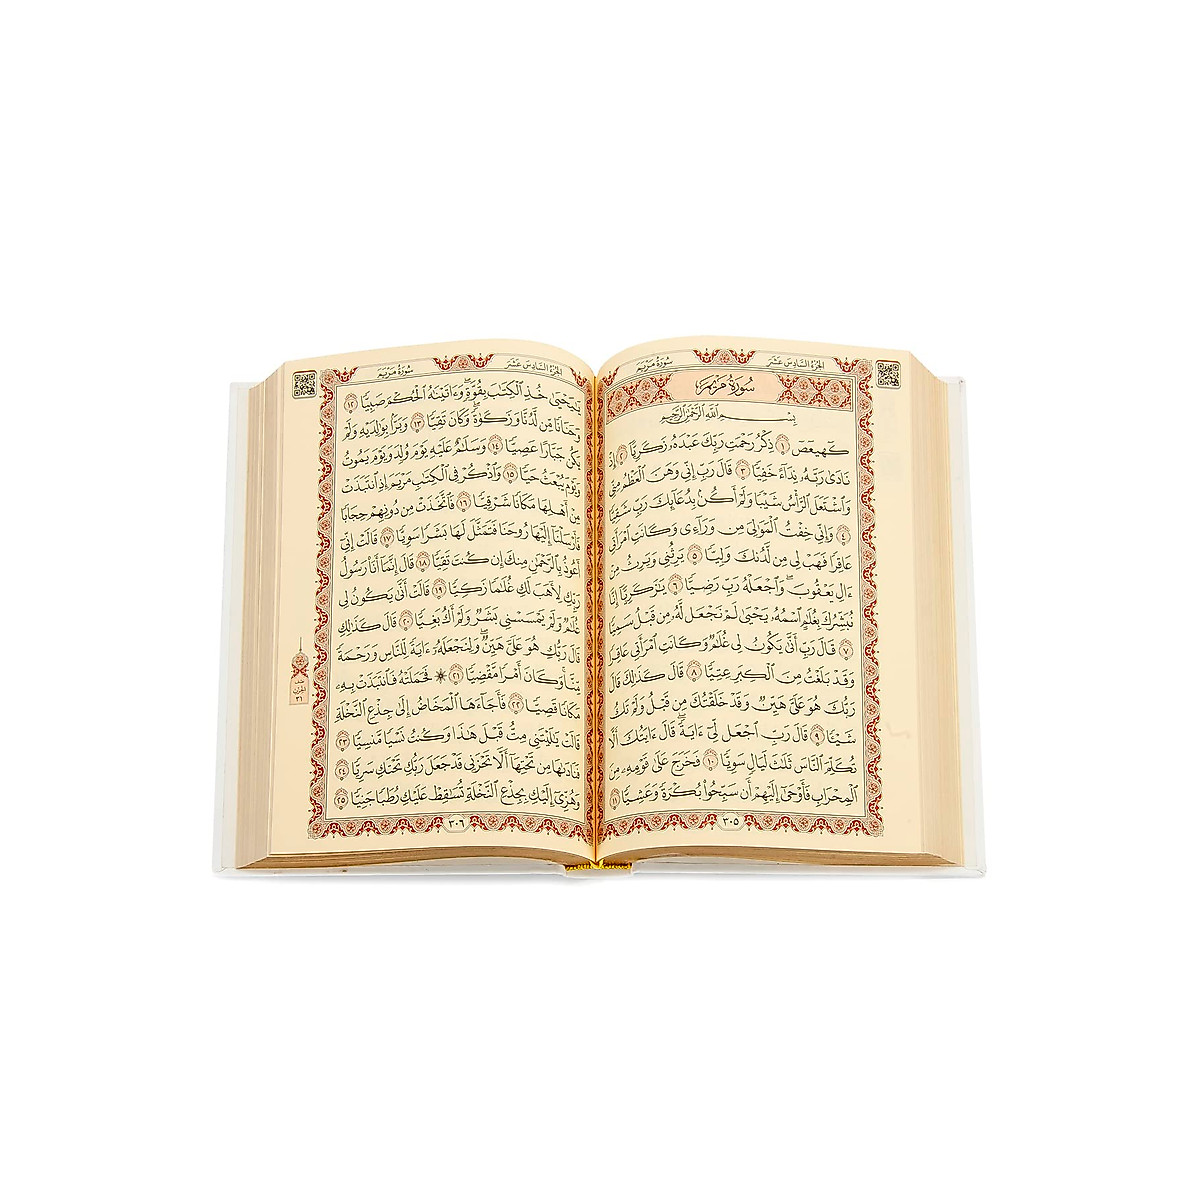 الجزء السادس عشر
سورة مريم
سورة مريم
بِسْمِ ٱللَّهِ ٱلرَّحْمَٰنِ ٱلرَّحِيمِ
كٓهيعٓصٓ ١ ذِكْرُ رَحْمَتِ رَبِّكَ عَبْدَهُۥ زَكَرِيَّآ ٢ إِذْ
نَادَىٰ رَبَّهُۥ نِدَآءً خَفِيًّا ٣ قَالَ رَبِّ إِنِّى وَهَنَ ٱلْعَظْمُ مِنِّى
وَٱشْتَعَلَ ٱلرَّأْسُ شَيْبًا وَلَمْ أَكُنۢ بِدُعَآئِكَ رَبِّ شَقِيًّا
٤ وَإِنِّى خِفْتُ ٱلْمَوَٰلِىَ مِن وَرَآءِى وَكَانَتِ ٱمْرَأَتِى
عَاقِرًا فَهَبْ لِى مِن لَّدُنكَ وَلِيًّا ٥ يَرِثُنِى وَيَرِثُ مِنْ
ءَالِ يَعْقُوبَ ۖ وَٱجْعَلْهُ رَبِّ رَضِيًّا ٦ يَٰزَكَرِيَّآ إِنَّا
نُبَشِّرُكَ بِغُلَٰمٍ ٱسْمُهُۥ يَحْيَىٰ لَمْ نَجْعَل لَّهُۥ مِن قَبْلُ سَمِيًّا
٧ قَالَ رَبِّ أَنَّىٰ يَكُونُ لِى غُلَٰمٌ وَكَانَتِ ٱمْرَأَتِى عَاقِرًا
وَقَدْ بَلَغْتُ مِنَ ٱلْكِبَرِ عِتِيًّا ٨ قَالَ كَذَٰلِكَ قَالَ
رَبُّكَ هُوَ عَلَىَّ هَيِّنٌ وَقَدْ خَلَقْتُكَ مِن قَبْلُ وَلَمْ تَكُ
شَيْـًٔا ٩ قَالَ رَبِّ ٱجْعَل لِّىٓ ءَايَةً ۚ قَالَ ءَايَتُكَ أَلَّا
تُكَلِّمَ ٱلنَّاسَ ثَلَٰثَ لَيَالٍ سَوِيًّا ١٠ فَخَرَجَ عَلَىٰ قَوْمِهِۦ مِنَ
ٱلْمِحْرَابِ فَأَوْحَىٰٓ إِلَيْهِمْ أَن سَبِّحُوا۟ بُكْرَةً وَعَشِيًّا ١١
٣٠٥
الجزء السادس عشر
سورة مريم
يَٰيَحْيَىٰ خُذِ ٱلْكِتَٰبَ بِقُوَّةٍ ۖ وَءَاتَيْنَٰهُ ٱلْحُكْمَ صَبِيًّا ١٢
وَحَنَانًا مِّن لَّدُنَّا وَزَكَوٰةً ۖ وَكَانَ تَقِيًّا ١٣ وَبَرًّۢا بِوَٰلِدَيْهِ وَلَمْ
يَكُن جَبَّارًا عَصِيًّا ١٤ وَسَلَٰمٌ عَلَيْهِ يَوْمَ وُلِدَ وَيَوْمَ يَمُوتُ
وَيَوْمَ يُبْعَثُ حَيًّا ١٥ وَٱذْكُرْ فِى ٱلْكِتَٰبِ مَرْيَمَ إِذِ ٱنتَبَذَتْ
مِنْ أَهْلِهَا مَكَانًا شَرْقِيًّا ١٦ فَٱتَّخَذَتْ مِن دُونِهِمْ حِجَابًا
فَأَرْسَلْنَآ إِلَيْهَا رُوحَنَا فَتَمَثَّلَ لَهَا بَشَرًا سَوِيًّا ١٧ قَالَتْ إِنِّىٓ
أَعُوذُ بِٱلرَّحْمَٰنِ مِنكَ إِن كُنتَ تَقِيًّا ١٨ قَالَ إِنَّمَآ أَنَا۠ رَسُولُ
رَبِّكِ لِأَهَبَ لَكِ غُلَٰمًا زَكِيًّا ١٩ قَالَتْ أَنَّىٰ يَكُونُ لِى
غُلَٰمٌ وَلَمْ يَمْسَسْنِى بَشَرٌ وَلَمْ أَكُ بَغِيًّا ٢٠ قَالَ كَذَٰلِكِ
قَالَ رَبُّكِ هُوَ عَلَىَّ هَيِّنٌ ۖ وَلِنَجْعَلَهُۥٓ ءَايَةً لِّلنَّاسِ وَرَحْمَةً
مِّنَّا ۚ وَكَانَ أَمْرًا مَّقْضِيًّا ٢١ ۞ فَحَمَلَتْهُ فَٱنتَبَذَتْ بِهِۦ
مَكَانًا قَصِيًّا ٢٢ فَأَجَآءَهَا ٱلْمَخَاضُ إِلَىٰ جِذْعِ ٱلنَّخْلَةِ
قَالَتْ يَٰلَيْتَنِى مِتُّ قَبْلَ هَٰذَا وَكُنتُ نَسْيًا مَّنسِيًّا ٢٣
فَنَادَىٰهَا مِن تَحْتِهَآ أَلَّا تَحْزَنِى قَدْ جَعَلَ رَبُّكِ تَحْتَكِ سَرِيًّا ٢٤
وَهُزِّىٓ إِلَيْكِ بِجِذْعِ ٱلنَّخْلَةِ تُسَٰقِطْ عَلَيْكِ رُطَبًا جَنِيًّا ٢٥
نصف
الحزب
٣١
٣٠٦